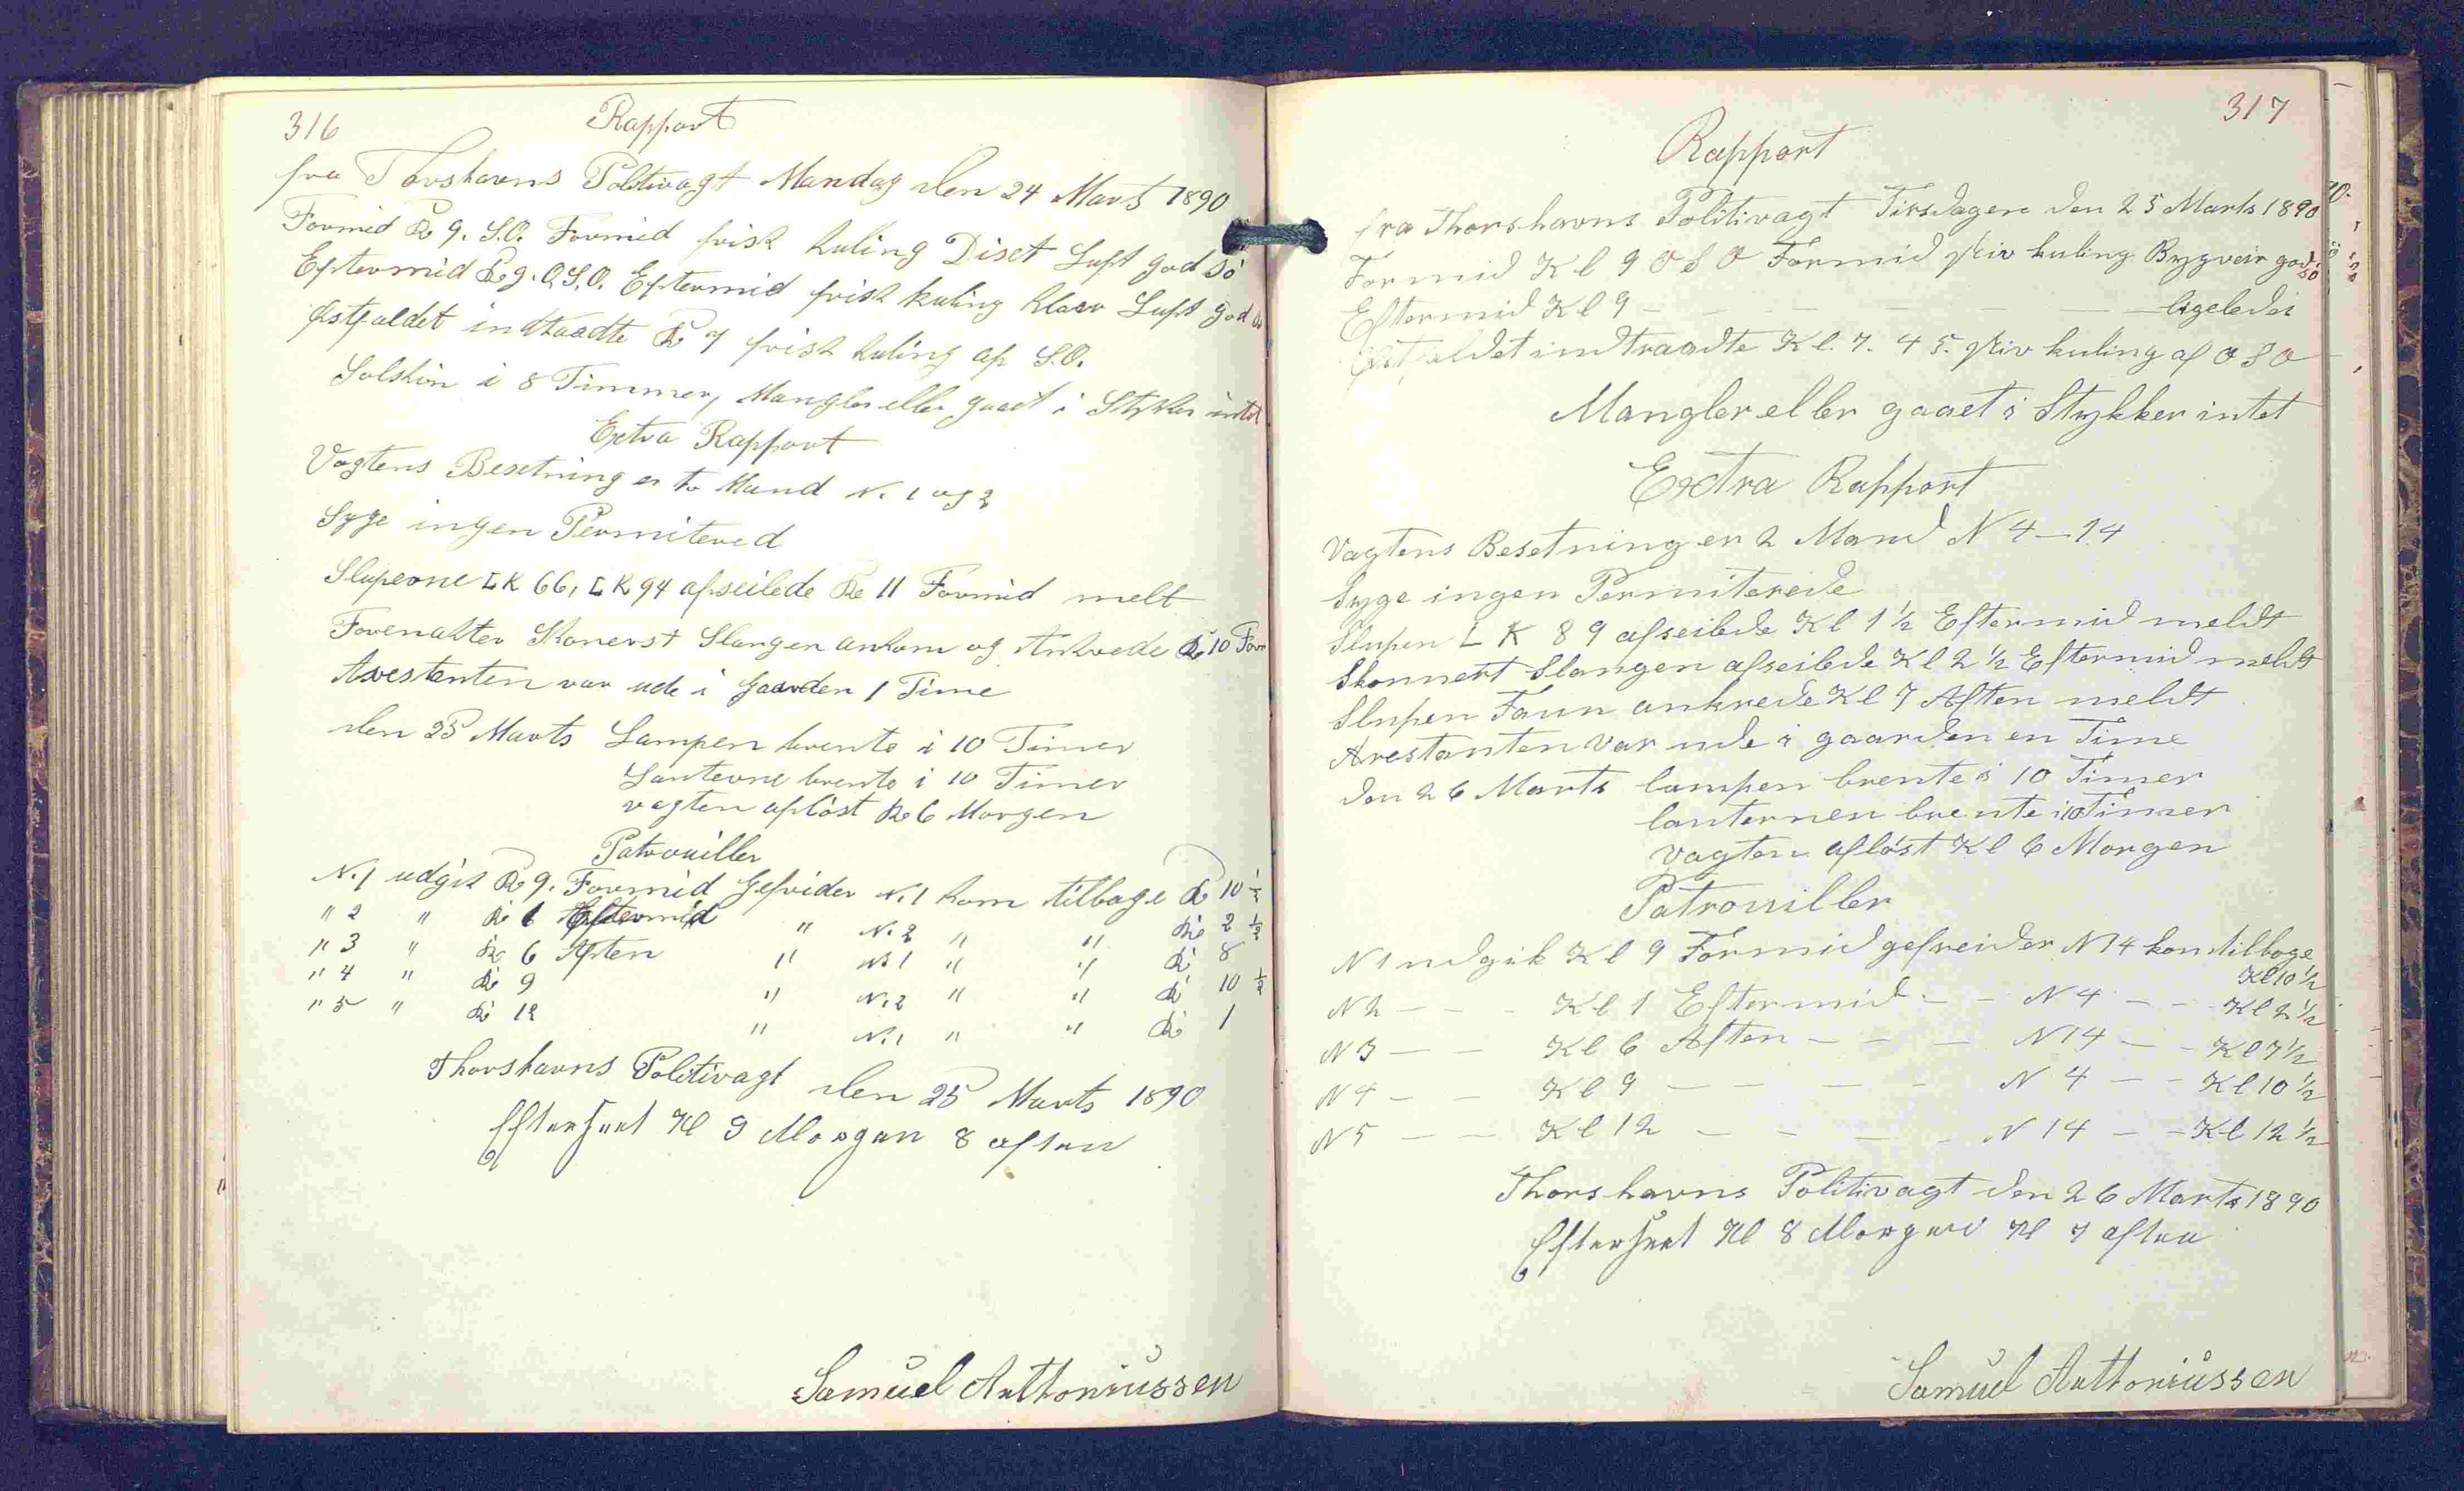 316
Rapport
fra Thorshavns Politivagt Mandag den 24 Marts 1890
Formid Kl 9. S.O. Formid frisk kuling Diset Luft god Sö
Eftermid Kl 9. O.S.O. Eftermid frisk kuling klaar Luft god
Østfaldet indtraadte Kl 7 frisk kuling af S.O.
Solskin i 8 Timmer, Mangler eller gaaet i Stykker intet
Extra Rapport
Vagtens Besetning er to Mand N. 1 og 2
Syge ingen Permitered
Sluperne LK 66, LK 94 afseilede Kl 11 Formid melt
Forenakter Skonerst Slangen ankom og Ankrede Kl 10 Form
Arestanten var ude i Gaarden 1 Time
den 25 Marts Lampen brente i 10 Timer
Lanterne brente i 10 Timer
vagten aflöst Kl 6 Morgen
Patrouiller
N. 1 udgik Kl 9. Formid Gefrider N. 1 kom tilbage Kl 10 ½
" 2 " Kl 1 Eftermid " N. 2 " " Kl 2 ½
" 3 " Kl 6 Aften " N. 1 " " Kl 8
" 4 " Kl 9 " N. 2 " " Kl 10 ½
" 5 " Kl 12 " N. 1 " " Kl 1
Thorshavns Politivagt den 25 Marts 1890
Efterseet Kl 9 Morgen 8 aften
Samuel Anthoniussen
317
Rapport
fra Thorshavns Politivagt Tirsdagen den 25 Marts 1890
Formid Kl 9 O S O Formid stiv kuling Bygveir god sö
Eftermid Kl 9 — — — — — ligeledes
Østfaldet indtraadte Kl. 7. 45. stiv kuling af O S O
Mangler eller gaaet i Stykker intet
Extra Rapport
Vagtens Besetning er 2 Mand N 4 – 14
Syge ingen Permiterede
Slupen L K 89 afseilede Kl 1 ½ Eftermid meldt
Skonnert Slangen afseilede Kl 2 ½ Eftermid meldt
Slupen Faun ankrede Kl 7 Aften meldt
Arestanten var ude i gaarden en Time
den 26 Marts lampen brente i 10 Timer
lanternen brente i 10 Timer
Vagten aflöst Kl 6 Morgen
Patrouiller
N 1 udgik Kl 9 Formid gefreider N 14 kom tilbage
Kl 10 ½
N 2 — — Kl 1 Eftermid — — N 4 — — Kl 2 ½
N 3 — — Kl 6 Aften — — — N 14 — — Kl 7 ½
N 4 — — Kl 9 — — — — N 4 — — Kl 10 ½
N 5 — — Kl 12 — — — — N 14 — — Kl 12 ½
Thorshavns Politivagt den 26 Marts 1890
Efterseet Kl 8 Morgen Kl 7 aften
Samuel Anthoniussen